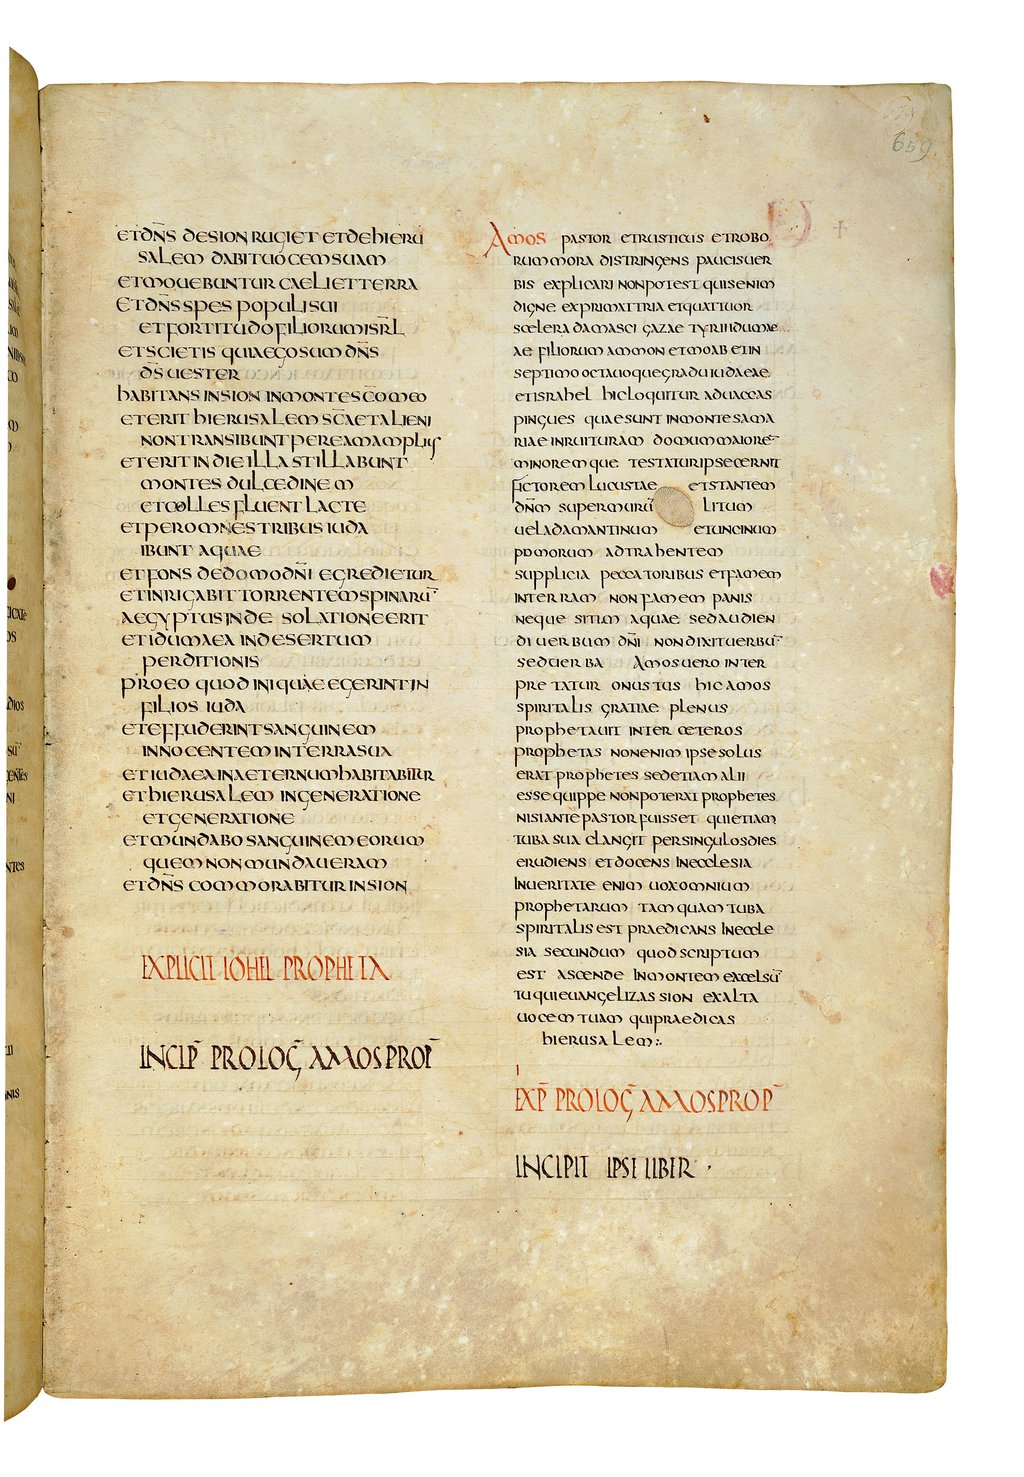 659.
ET DN̄S DE SION RUGIET ET DE HIERU
SALEM DABIT UOCEM SUAM
ET MOUEBUNTUR CAELI ET TERRA
ET DN̄S SPES POPULI SUI
ET FORTITUDO FILIORUM ISRL̄
ET SCIETIS QUIA EGO SUM DN̄S
DS̄ UESTER
HABITANS IN SION IN MONTE SC̄O MEO
ET ERIT HIERUSALEM SC̄A ET ALIENI
NON TRANSIBUNT PER EAM AMPLIUS
ET ERIT IN DIE ILLA STILLABUNT
MONTES DULCEDINEM
ET COLLES FLUENT LACTE
ET PER OMNES TRIBUS IUDA
IBUNT AQUAE
ET FONS DE DOMO DN̄I EGREDIETUR
ET INRIGABIT TORRENTEM SPINARŪ
AEGYPTUS IN DESOLATIONE ERIT
ET IDUMAEA IN DESERTUM
PERDITIONIS
PRO EO QUOD INIQUAE EGERINT IN
FILIOS IUDA
ET EFFUDERINT SANGUINEM
INNOCENTEM IN TERRA SUA
ET IUDAEA IN AETERNUM HABITABITUR
ET HIERUSALEM IN GENERATIONE
ET GENERATIONE
ET MUNDABO SANGUINEM EORUM
QUEM NON MUNDAUERAM
ET DN̄S COMMORABITUR IN SION
EXPLICIT IOHEL PROPHETA
INCIP̄ PROLOḠ AMOS PROP̄
AMOS PASTOR ET RUSTICUS ET ROBO
RUM MORA DISTRINGENS PAUCIS UER
BIS EXPLICARI NON POTEST QUIS ENIM
DIGNE EXPRIMAT TRIA ET QUATTUOR
SCELERA DAMASCI GAZAE TYRI IDUMAE
AE FILIORUM AMMON ET MOAB ET IN
SEPTIMO OCTAUOQUE GRADU IUDAEAE
ET ISRAHEL HIC LOQUITUR AD UACCAS
PINGUES QUAE SUNT IN MONTE SAMA
RIAE IN RUITURAM DOMUM MAIORĒ
MINOREMQUE TESTATUR IPSE CERNIT
FICTOREM LUCUSTAE ET STANTEM
DN̄M SUPER MURŪ LITUM
UEL ADAMANTINUM ET UNCINUM
POMORUM ADTRAHENTEM
SUPPLICIA PECCATORIBUS ET FAMEM
IN TERRAM NON FAMEM PANIS
NEQUE SITIM AQUAE SED AUDIEN
DI UERBUM DN̄I NON DIXIT UERBŪ
SED UERBA AMOS UERO INTER
PRETATUR ONUSTUS HIC AMOS
SPIRITALIS GRATIAE PLENUS
PROPHETAUIT INTER CETEROS
PROPHETAS NON ENIM IPSE SOLUS
ERAT PROPHETES SED ETIAM ALII
ESSE QUIPPE NON POTERAT PROPHETES
NISI ANTE PASTOR FUISSET QUI ETIAM
TUBA SUA CLANGIT PER SINGULOS DIES
ERUDIENS ET DOCENS IN ECCLESIA
IN UERITATE ENIM UOX OMNIUM
PROPHETARUM TAMQUAM TUBA
SPIRITALIS EST PRAEDICANS IN ECCLE
SIA SECUNDUM QUOD SCRIPTUM
EST ASCENDE IN MONTEM EXCELSŪ
TU QUI EUANGELIZAS SION EXALTA
UOCEM TUAM QUI PRAEDICAS
HIERUSALEM:.
EXP̄ PROLOḠ AMOS PROP̄
INCIPIT IPSI LIBER ·